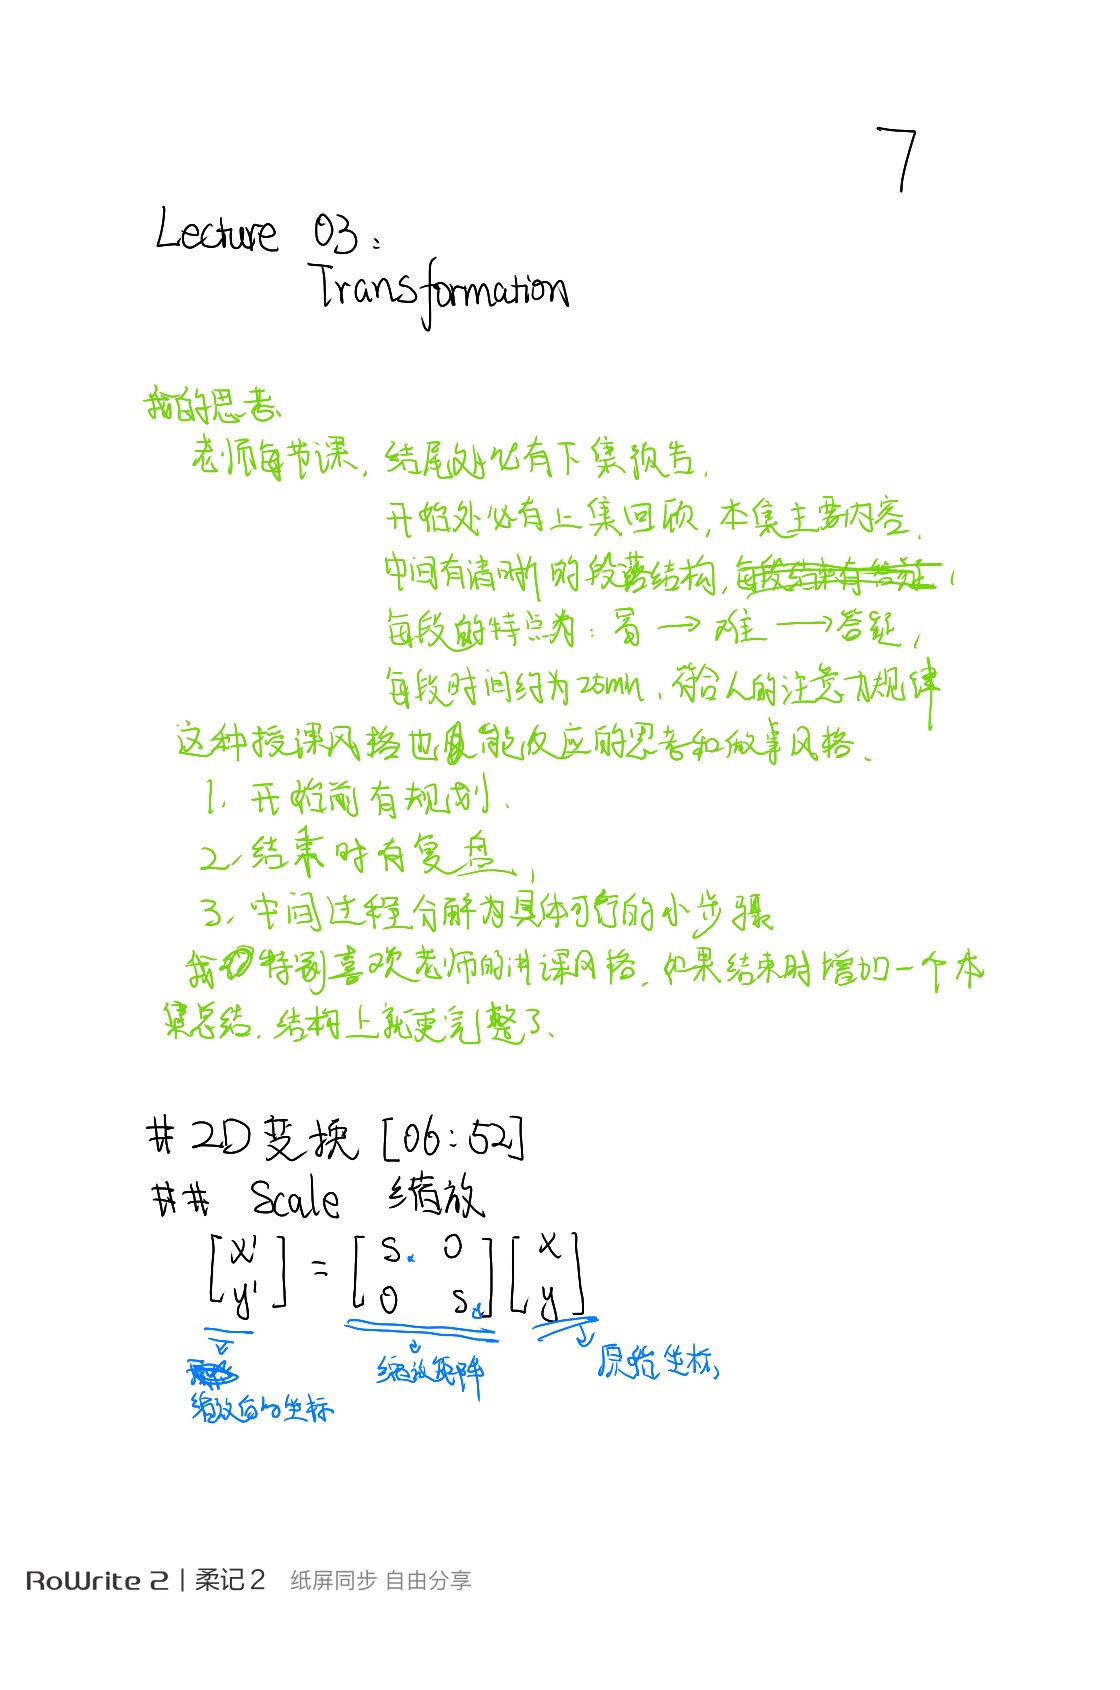 7
Lecture 03:
Transformation
我的思考、
老师每节课, 结尾处必有下集预告,
开始处必有上集回顾, 本集主要内容,
中间有清晰的段落结构, 每段结束有答疑,
每段的特点为: → 难 → 答疑,
每段时间约为25min、符合人的注意力规律
这种授课风格也能反应的思考和做事风格、
1、开始前有规划.
2、结束时有复盘,
3、中间过程分解为具体可行的小步骤
我特别喜欢老师的讲课风格, 如果结束时增加一个本
集总结, 结构上就更完整了、
# 2D变换 [06:52]
## Scale 缩放
[x' y'] = [Sx 0 0 Sy] [x y]
缩放矩阵 原始坐标,
缩放后的坐标
RoWrite 2 | 柔记 2 纸屏同步 自由分享